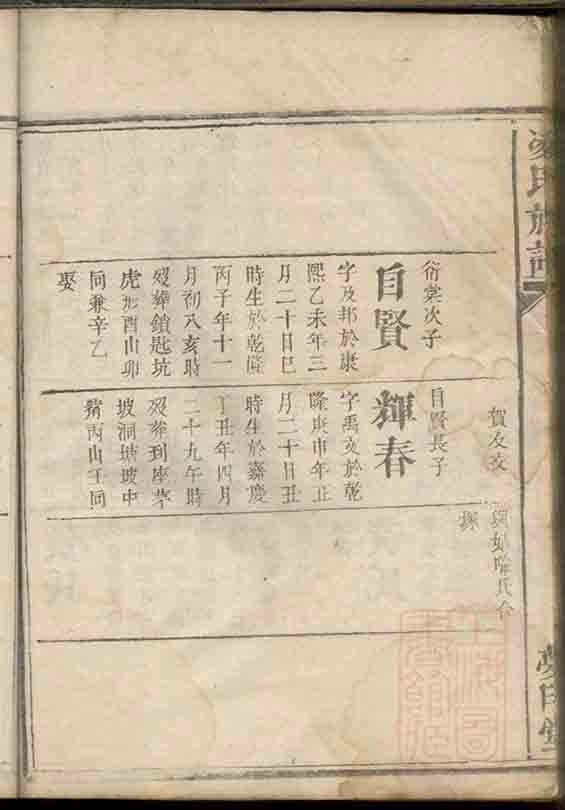 凌氏族譜
賀友文
與媳喻氏合
探
衍棠次子
自賢
字及邦於康
熙乙未年三
月二十日巳
時生於乾隆
丙子年十一
月初八亥時
歿葬鎖匙坑
虎形酉山卯
向兼辛乙
娶
自賢長子
輝春
字禹文於乾
隆庚申年正
月二十日丑
時生於嘉慶
丁丑年四月
二十九午時
歿葬到座茅
坡洞塘坡中
豬丙山壬向